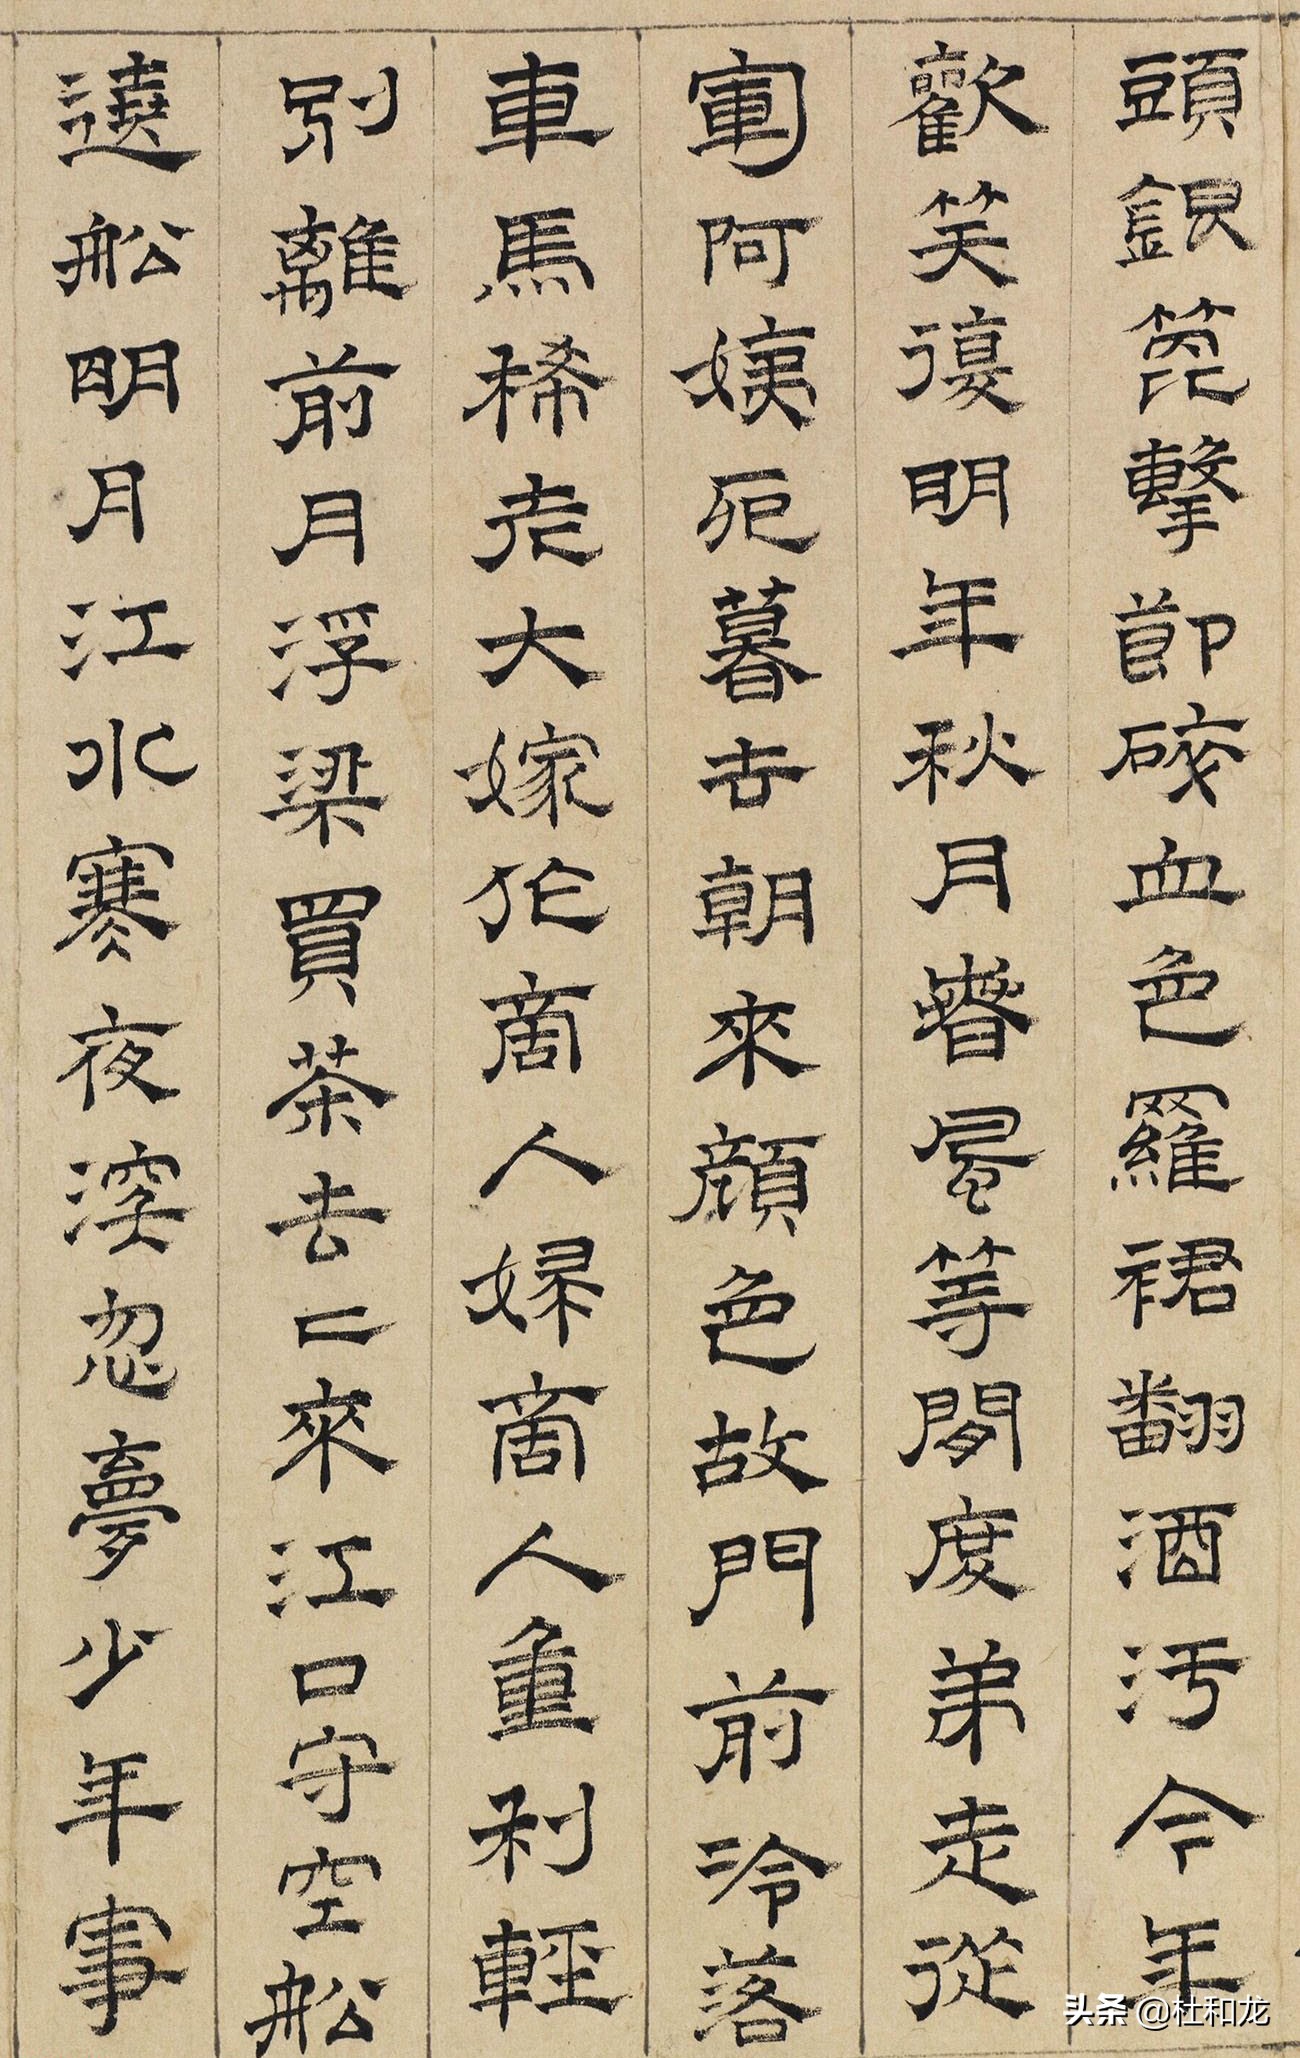 頭銀篦擊節碎血色羅裙翻酒汚今年
歡笑復明年秋月春風等閒度弟走從
軍阿姨死暮去朝來顏色故門前泠落
車馬稀老大嫁作商人婦商人重利輕
別離前月浮梁買茶去＝來江口守空船
遶船明月江水寒夜深忽夢少年事
头条 @杜和龙